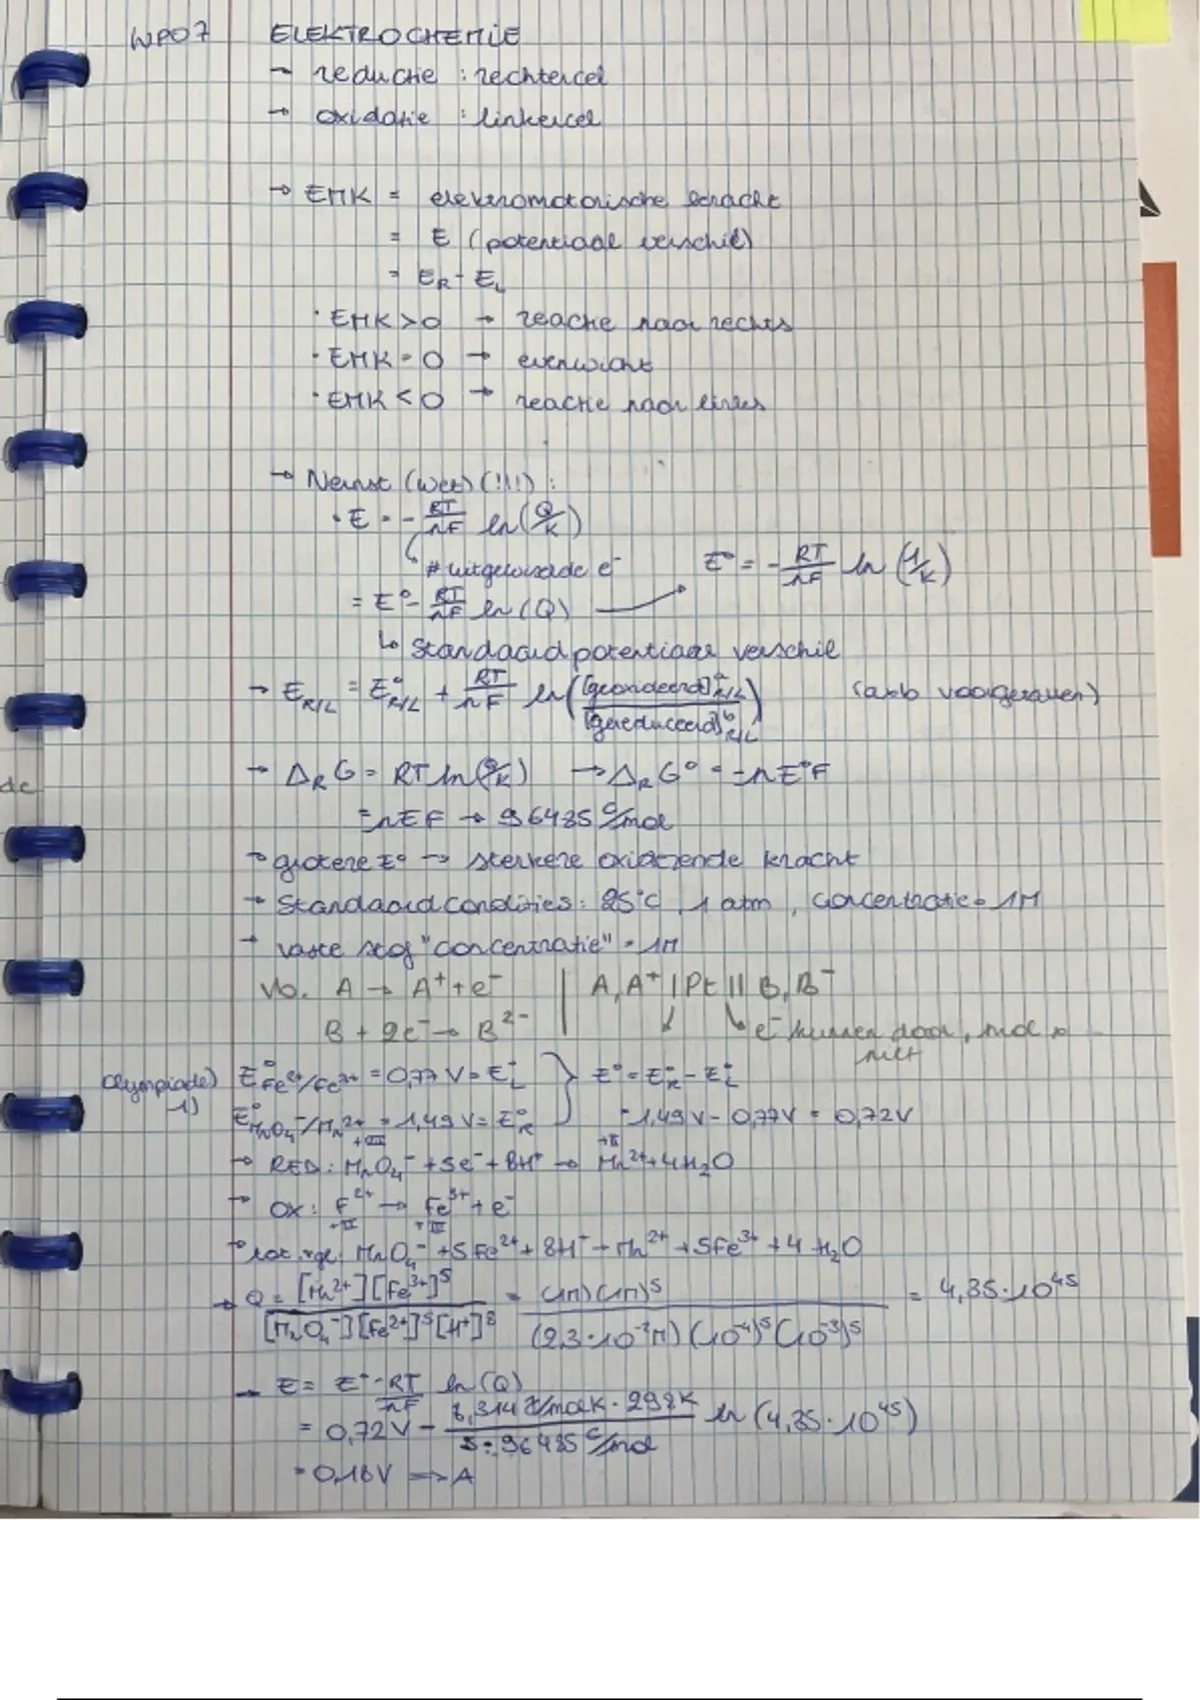 WPO7 ELEKTROCHEMIE
→ reductie : rechtercel
→ oxidatie : linkercel
→ EMK = elektromotorische kracht
= E (potentiaal verschil)
= E_R - E_L
· EMK > 0 → reactie naar rechts
· EMK = 0 → evenwicht
· EMK < 0 → reactie naar links
→ Nernst (wet) (!!!) :
· E = - RT/nF ln(Q/K)
# uitgewisselde e⁻ E° = - RT/nF ln(1/K)
= E° - RT/nF ln(Q)
↳ Standaard potentiaal verschil
→ E_R/L = E°_R/L + RT/nF ln([geoxideerd]^a_R/L / [gereduceerd]^b_R/L)
→ Δ_R G = RT ln(Q/K) → Δ_R G° = -nE°F
= -nEF → 96485 C/mol
→ grotere E° → sterkere oxiderende kracht
→ Standaard condities: 25°C, 1 atm, concentratie = 1M
→ vaste stof "concentratie" = 1M
de
Vb. A → A⁺ + e⁻ | A, A⁺ | Pt || B, B⁻
B + 2e⁻ → B²⁻ ↳ e⁻ kunnen door,
niet
Olympiade) E°Fe²⁺/Fe³⁺ = 0,77 V = E°_L } E° = E°_R - E°_L
1) E°MnO₄⁻/Mn²⁺ = 1,49 V = E°_R = 1,49 V - 0,77 V = 0,72 V
+VII +II
→ RED: MnO₄⁻ + 5e⁻ + 8H⁺ → Mn²⁺ + 4H₂O
→ OX: F²⁺ → Fe³⁺ + e⁻
+II +III
→ tot. vgl: MnO₄⁻ + 5Fe²⁺ + 8H⁺ → Mn²⁺ + 5Fe³⁺ + 4H₂O
→ Q = [Mn²⁺][Fe³⁺]⁵ / [MnO₄⁻][Fe²⁺]⁵[H⁺]⁸ = (1M)(1M)⁵ / (2,3·10⁻²M)(10⁻⁴)⁵(10⁻³)⁸ = 4,35·10⁴⁵
→ E = E° - RT/nF ln(Q)
= 0,72V - 8,314 J/molK · 298K / 5 · 96485 C/mol ln(4,35·10⁴⁵)
= 0,18V ⇒ A